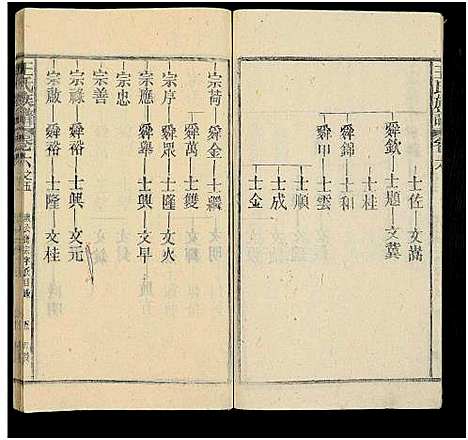 王氏族譜 卷六
士佐 文嵩
舜欽 士題 文冀
士桂
舜錦 士和
舜甲 士雲
士順
士成
士金
宗荷 舜金 士驪
舜萬 士雙
宗序 舜眾 士隆 文火
宗應 舜舉 士興 文早
宗忠
宗善
宗祿 舜裕 士興 文元
宗啟 舜裕 士隆 文桂
王氏族譜 卷六之五